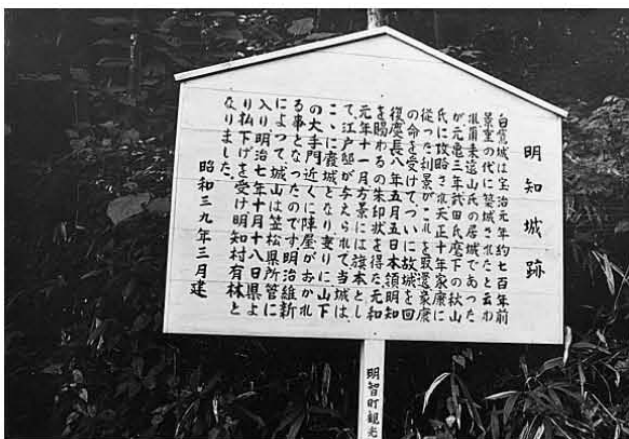 明知城跡
白鷹城は宝治元年約七百年前
景重の代に築城されたと云わ
れ爾来遠山氏の居城であった
が元亀三年武田氏麾下の秋山
氏に攻略され天正十年家康に
従った利景がこれを奪還家康
の命を受けてついに故城を回
復慶長八年五月五日本領明知
を賜わるの朱印状を得た元和
元年十一月方景には旗本とし
て江戸邸が与えられて当城は、
ここに廃城となり変りに山下
の大手門近くに陣屋がおかれ
る事となったのです。明治維新
によって城山は笠松県所管に
入り、明治七年十月十八日県よ
り払下げを受け明知村有林と
なりました。
昭和三九年三月建
明智町観光